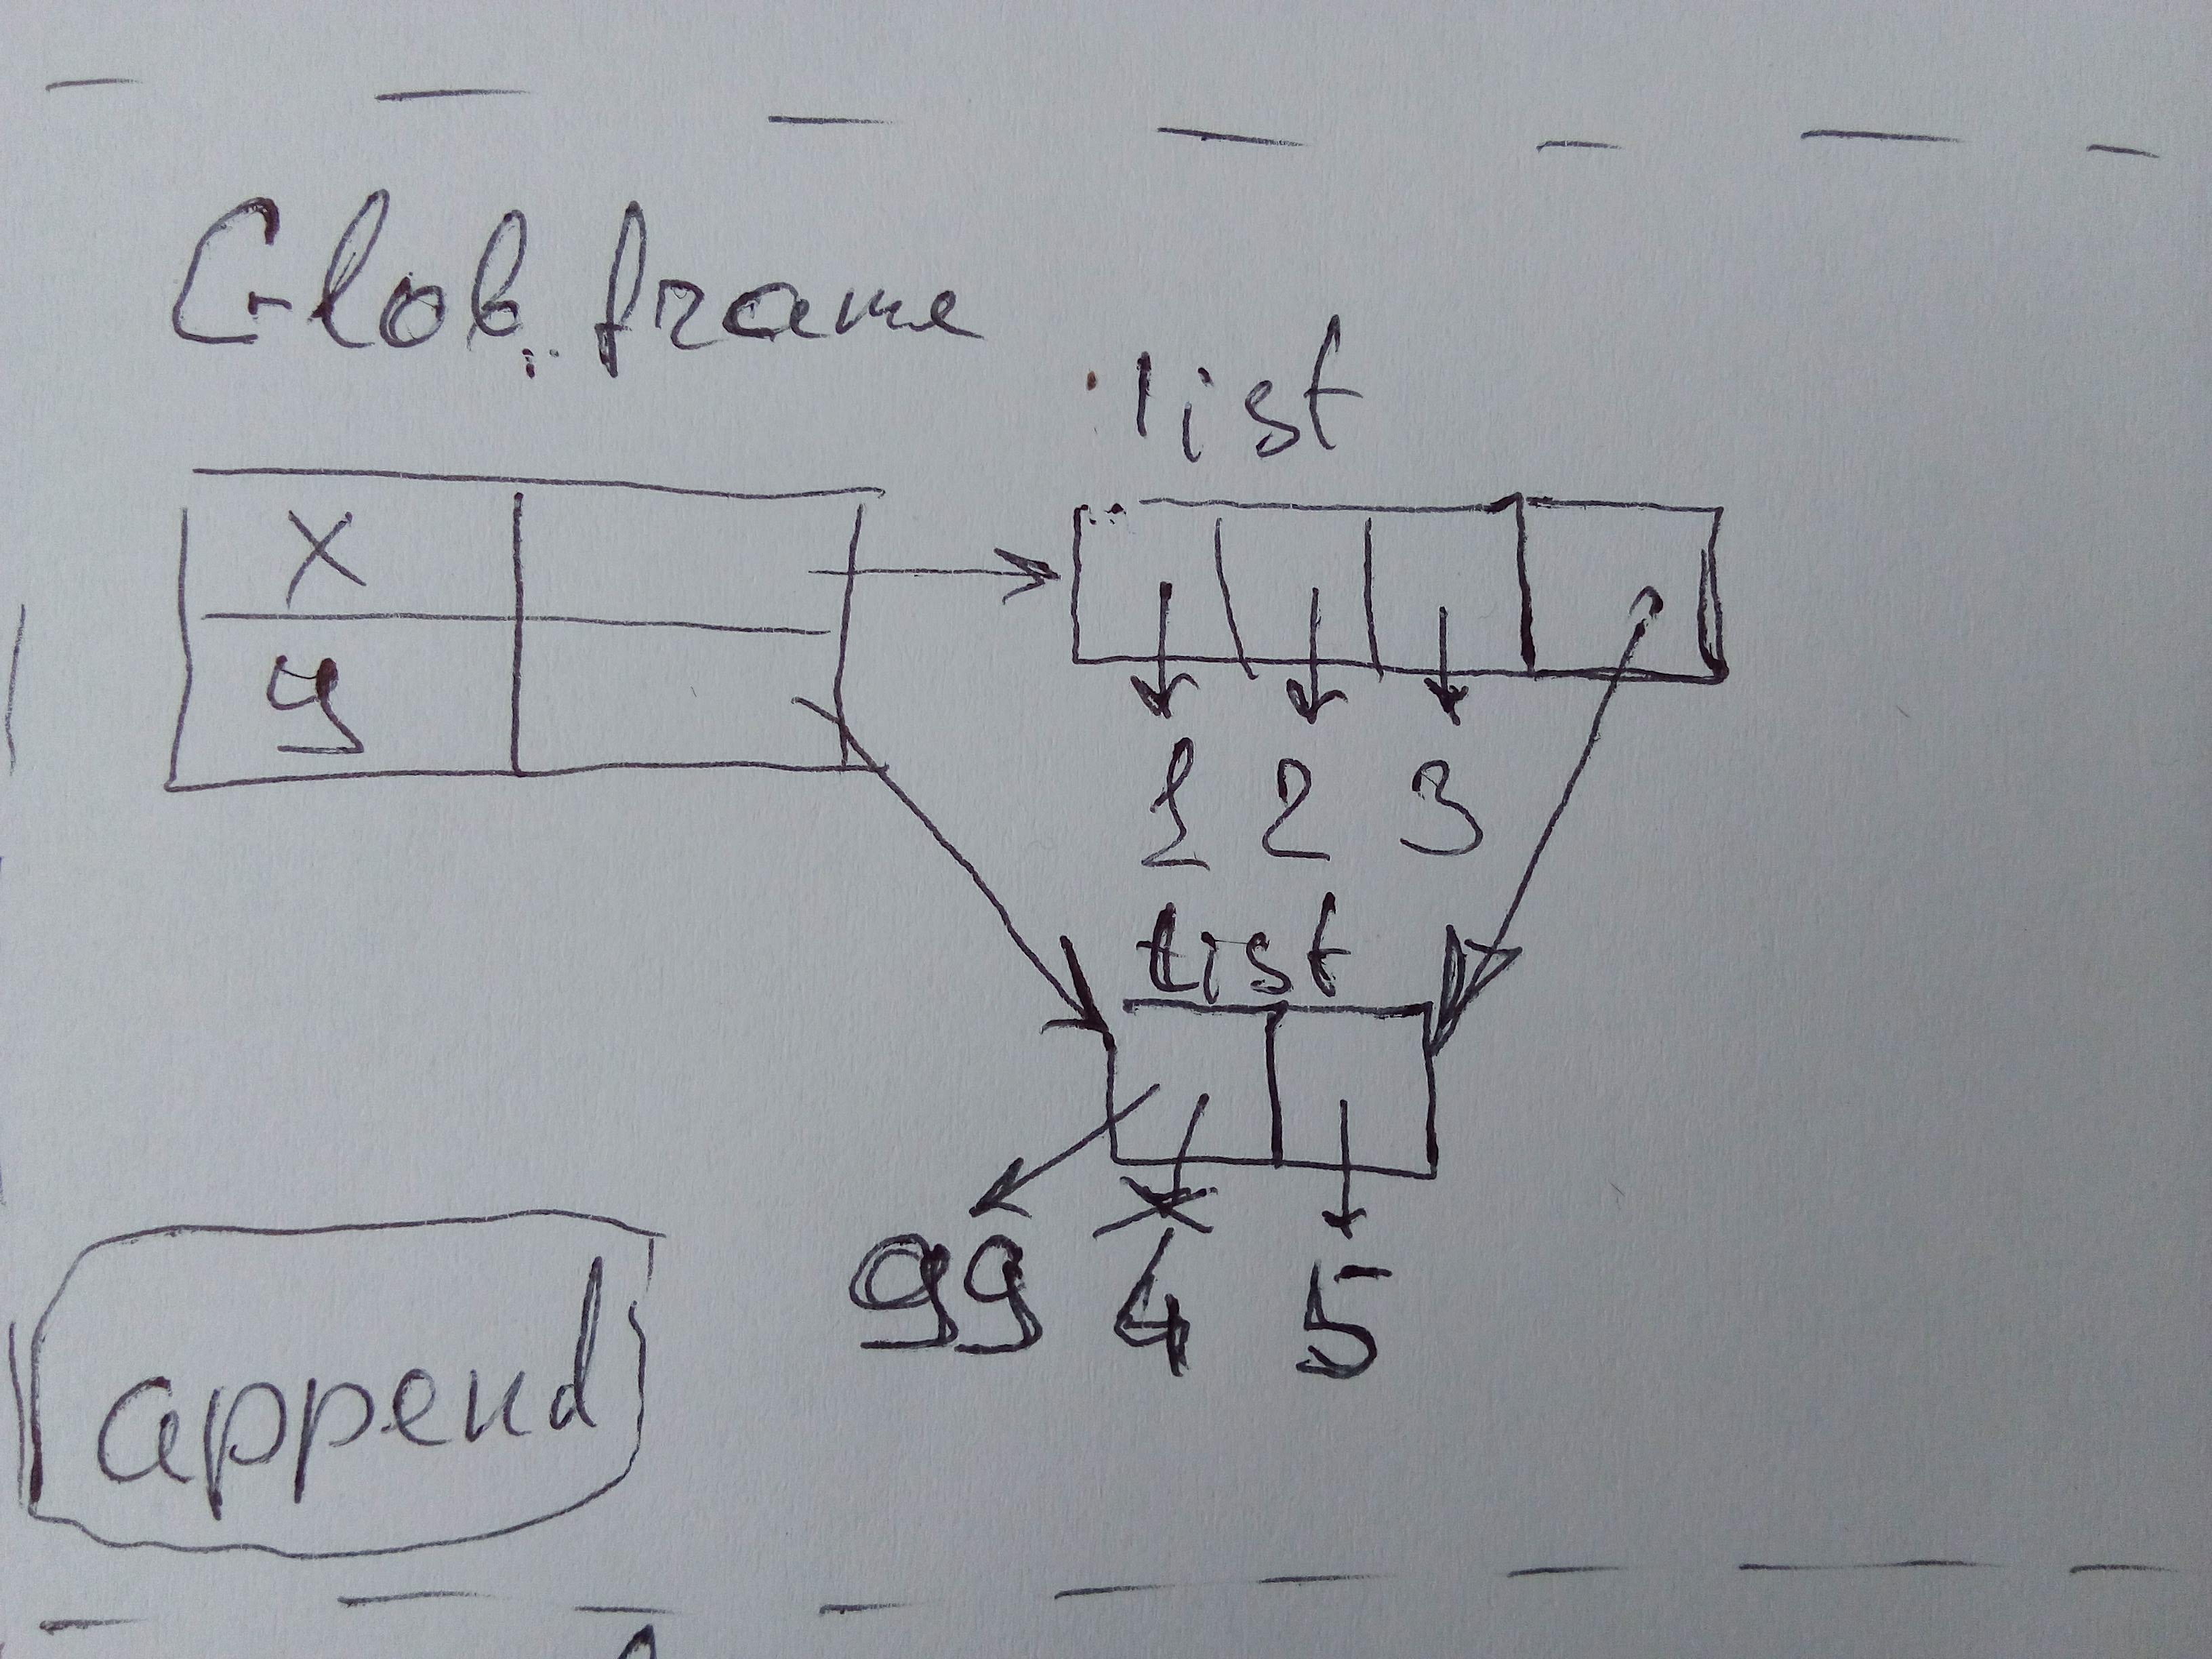 Glob. frame
list
x
y
1 2 3
list
99 4 5
append